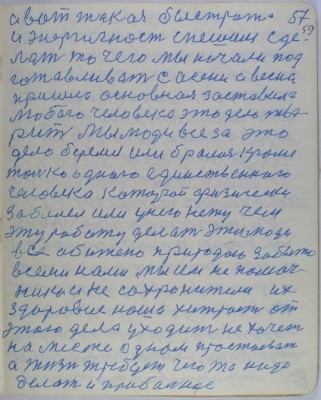 а вот такая быстрота 57
и энергичност спешим сде 59
лат то чего мы начали под
готавливат с осени а весна
пришла основная заставила
любого человека это дело тво
рит Мы люди все за это
дело беремся или брался кроме
только одного единственного
человека который физически
заболел или у него нету чем
эту работу делат эти люди
все обижено природою забыто
всеми нами мы им не помач
ники и не сохранители их
здоровие наша хитрост от
этого дела уходит не хочет
на месте одном простоеват
а жизн требует чего то надо
делат и прибавное